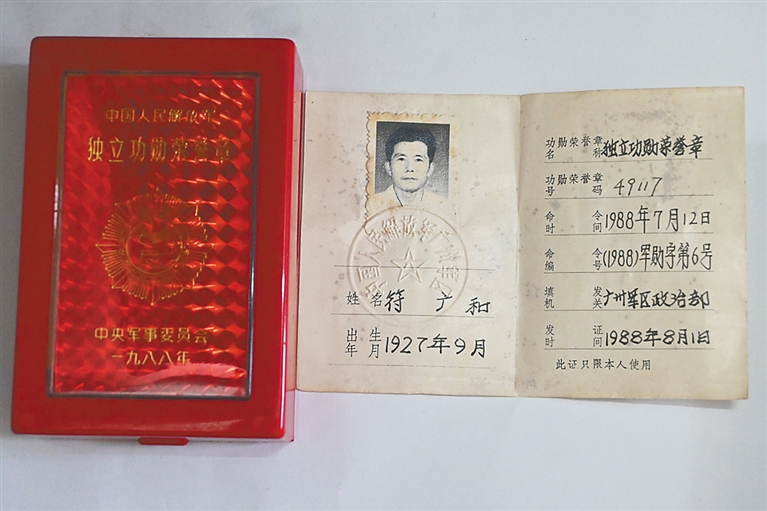 中国人民解放军
独立功勋荣誉章
中央军事委员会
一九八八年
中国人民解放军广州军区
姓名 符广和
出生年月 1927年9月
功勋荣誉章名称 独立功勋荣誉章
功勋荣誉章号码 49117
命令时间 1988年7月12日
命令编号 (1988)军勋字第6号
填发机关 广州军区政治部
发证时间 1988年8月1日
此证只限本人使用